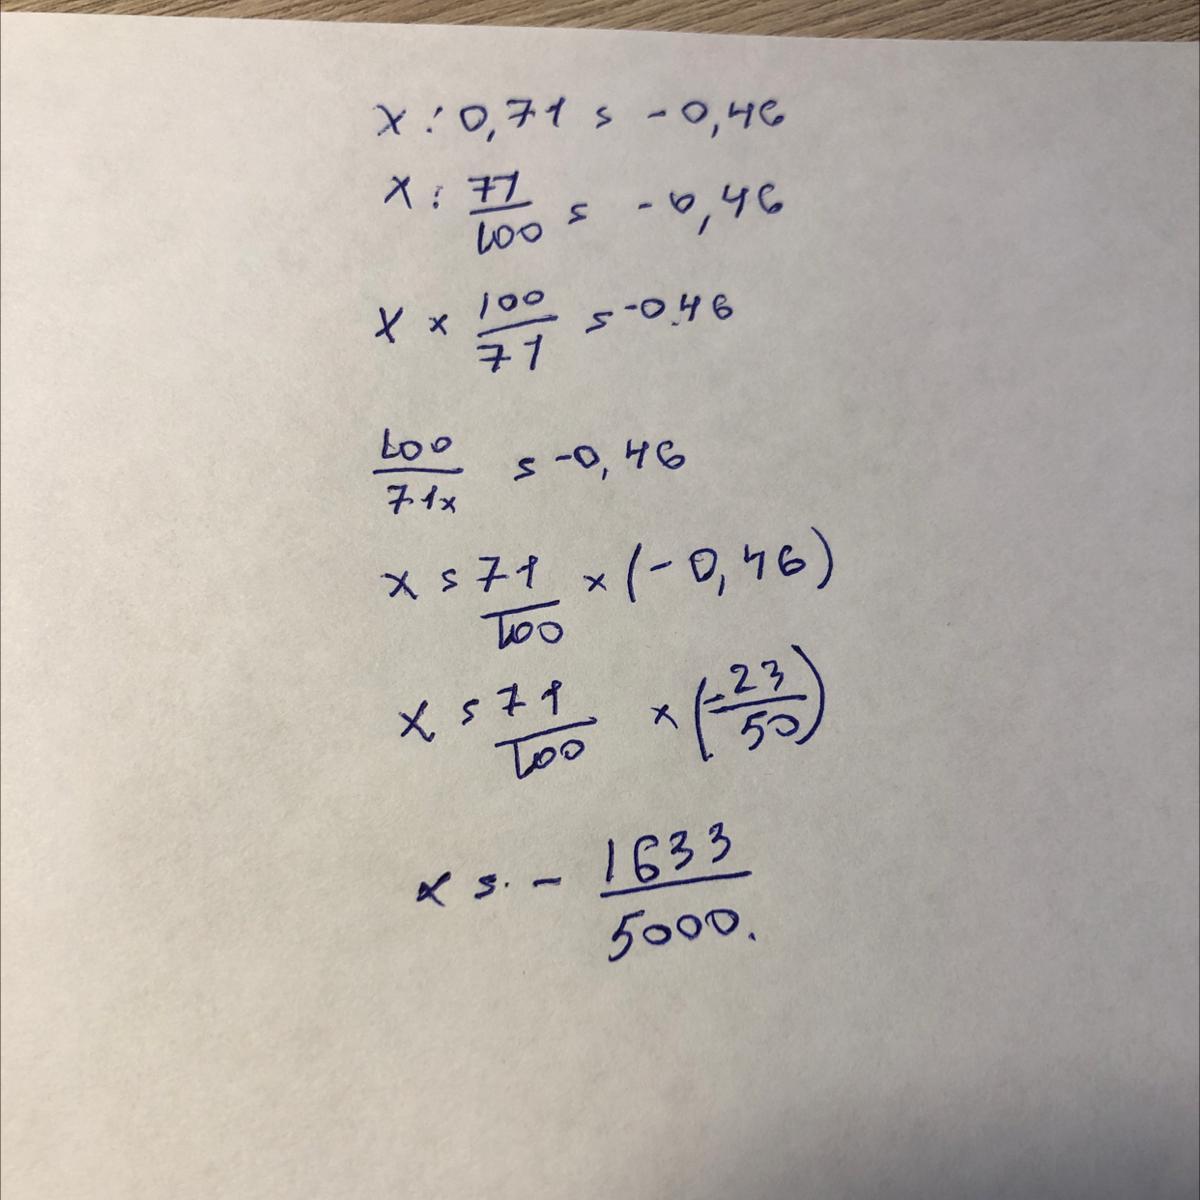 x : 0,71 = -0,46
x : 71/100 = -0,46
x × 100/71 = -0,46
100/71x = -0,46
x = 71/100 × (-0,46)
x = 71/100 × (-23/50)
x = - 1633/5000.